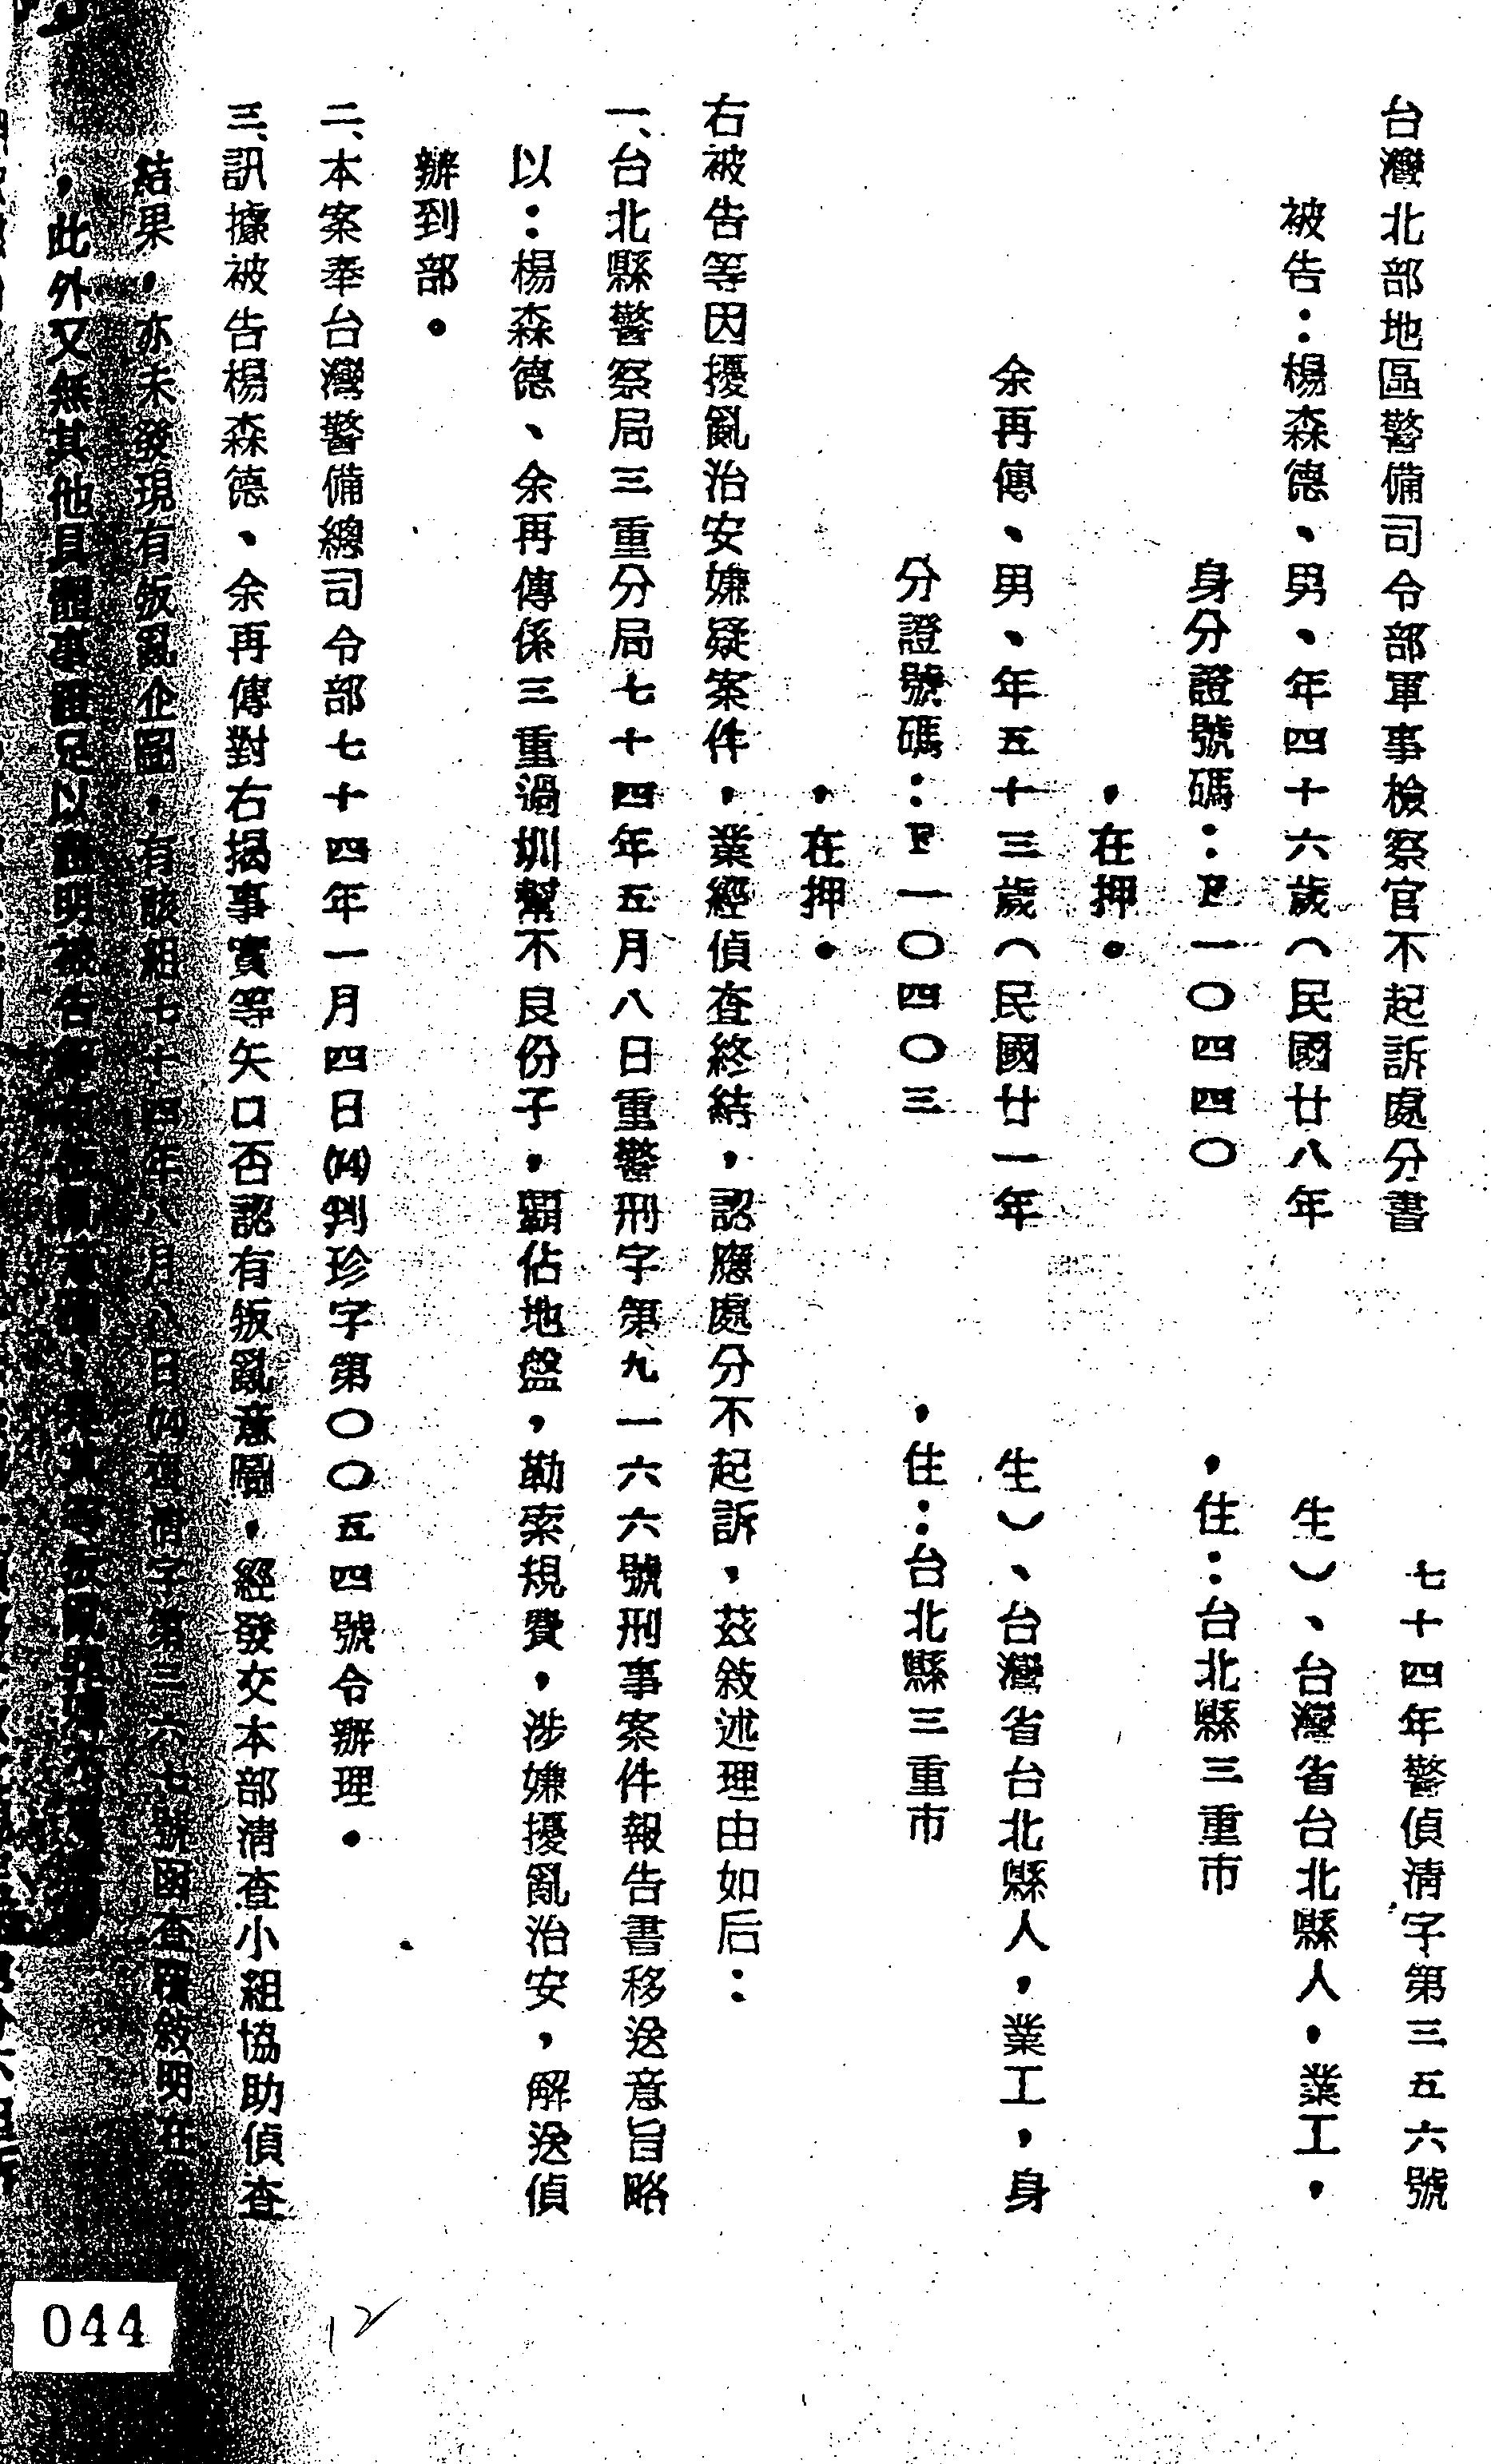 台灣北部地區警備司令部軍事檢察官不起訴處分書
七十四年警偵清字第三五六號
被告：楊森德、男、年四十六歲（民國廿八年
生）、台灣省台北縣人，業工，
身分證號碼：F一〇四四〇
，住：台北縣三重市
，在押。
余再傳、男、年五十三歲（民國廿一年
生）、台灣省台北縣人，業工，身
分證號碼：F一〇四〇三
，住：台北縣三重市
，在押。
右被告等因擾亂治安嫌疑案件，業經偵查終結，認應處分不起訴，茲敘述理由如后：
一、台北縣警察局三重分局七十四年五月八日重警刑字第九一六六號刑事案件報告書移送意旨略
以：楊森德、余再傳係三重過圳幫不良份子，霸佔地盤，勒索規費，涉嫌擾亂治安，解送偵
辦到部。
二、本案奉台灣警備總司令部七十四年一月四日(74)判珍字第〇〇五四號令辦理。
三、訊據被告楊森德、余再傳對右揭事實等矢口否認有叛亂意圖，經發交本部清查小組協助偵查
結果，亦未發現有叛亂企圖，有該組七十四年八月八日(74)字第三六七號函查覆敘明在
，此外又無其他具體事證足以證明被告
044
12